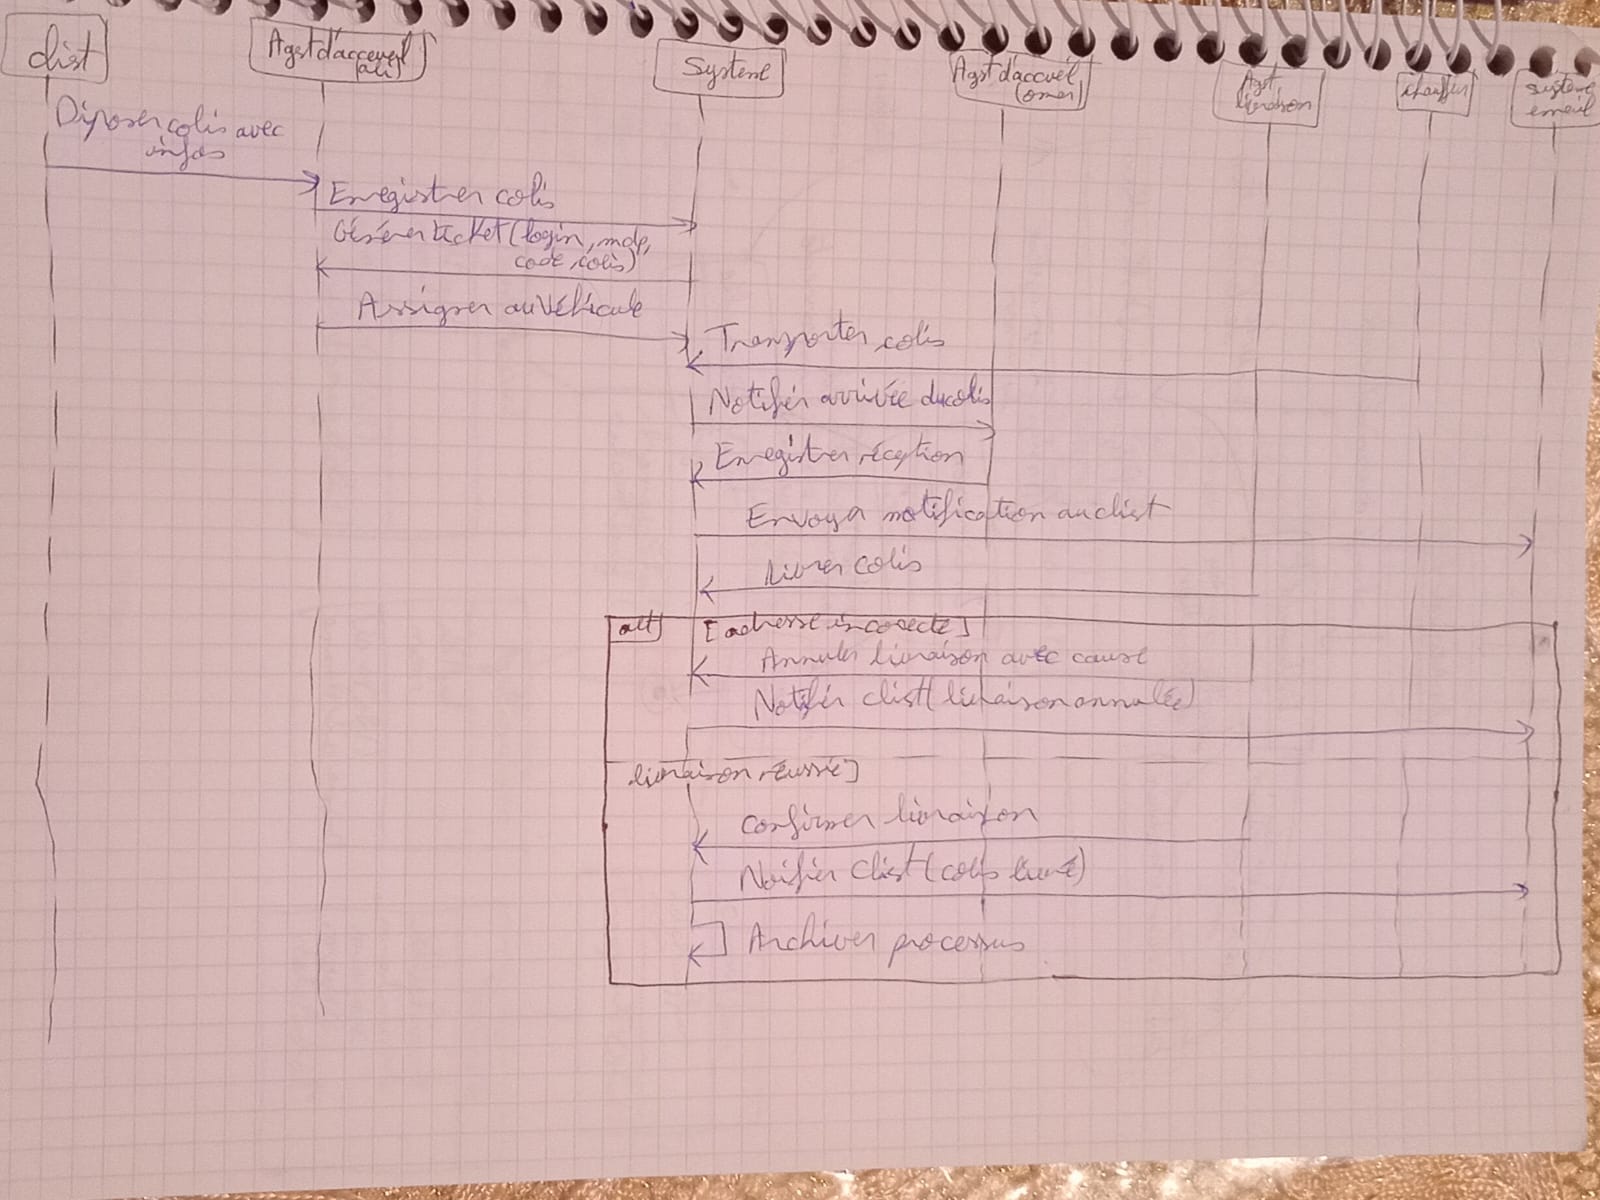 client
Agent d'acceuil
(ali)
Système
Agent d'accueil
(omar)
Agt
livraison
chauffeur
système
email
Diposer colis avec
infos
Enregistrer colis
Générer ticket (login, mdp,
code colis)
Assigner au véhicule
Transporter colis
Notifier arrivée du colis
Enregistrer réception
Envoyer notification au client
Livrer colis
alt [adresse incorecte]
Annuler livraison avec cause
Notifier client (livraison annulée)
livraison réussie]
confirmer livraison
Noifier Client (colis livré)
Archiver processus